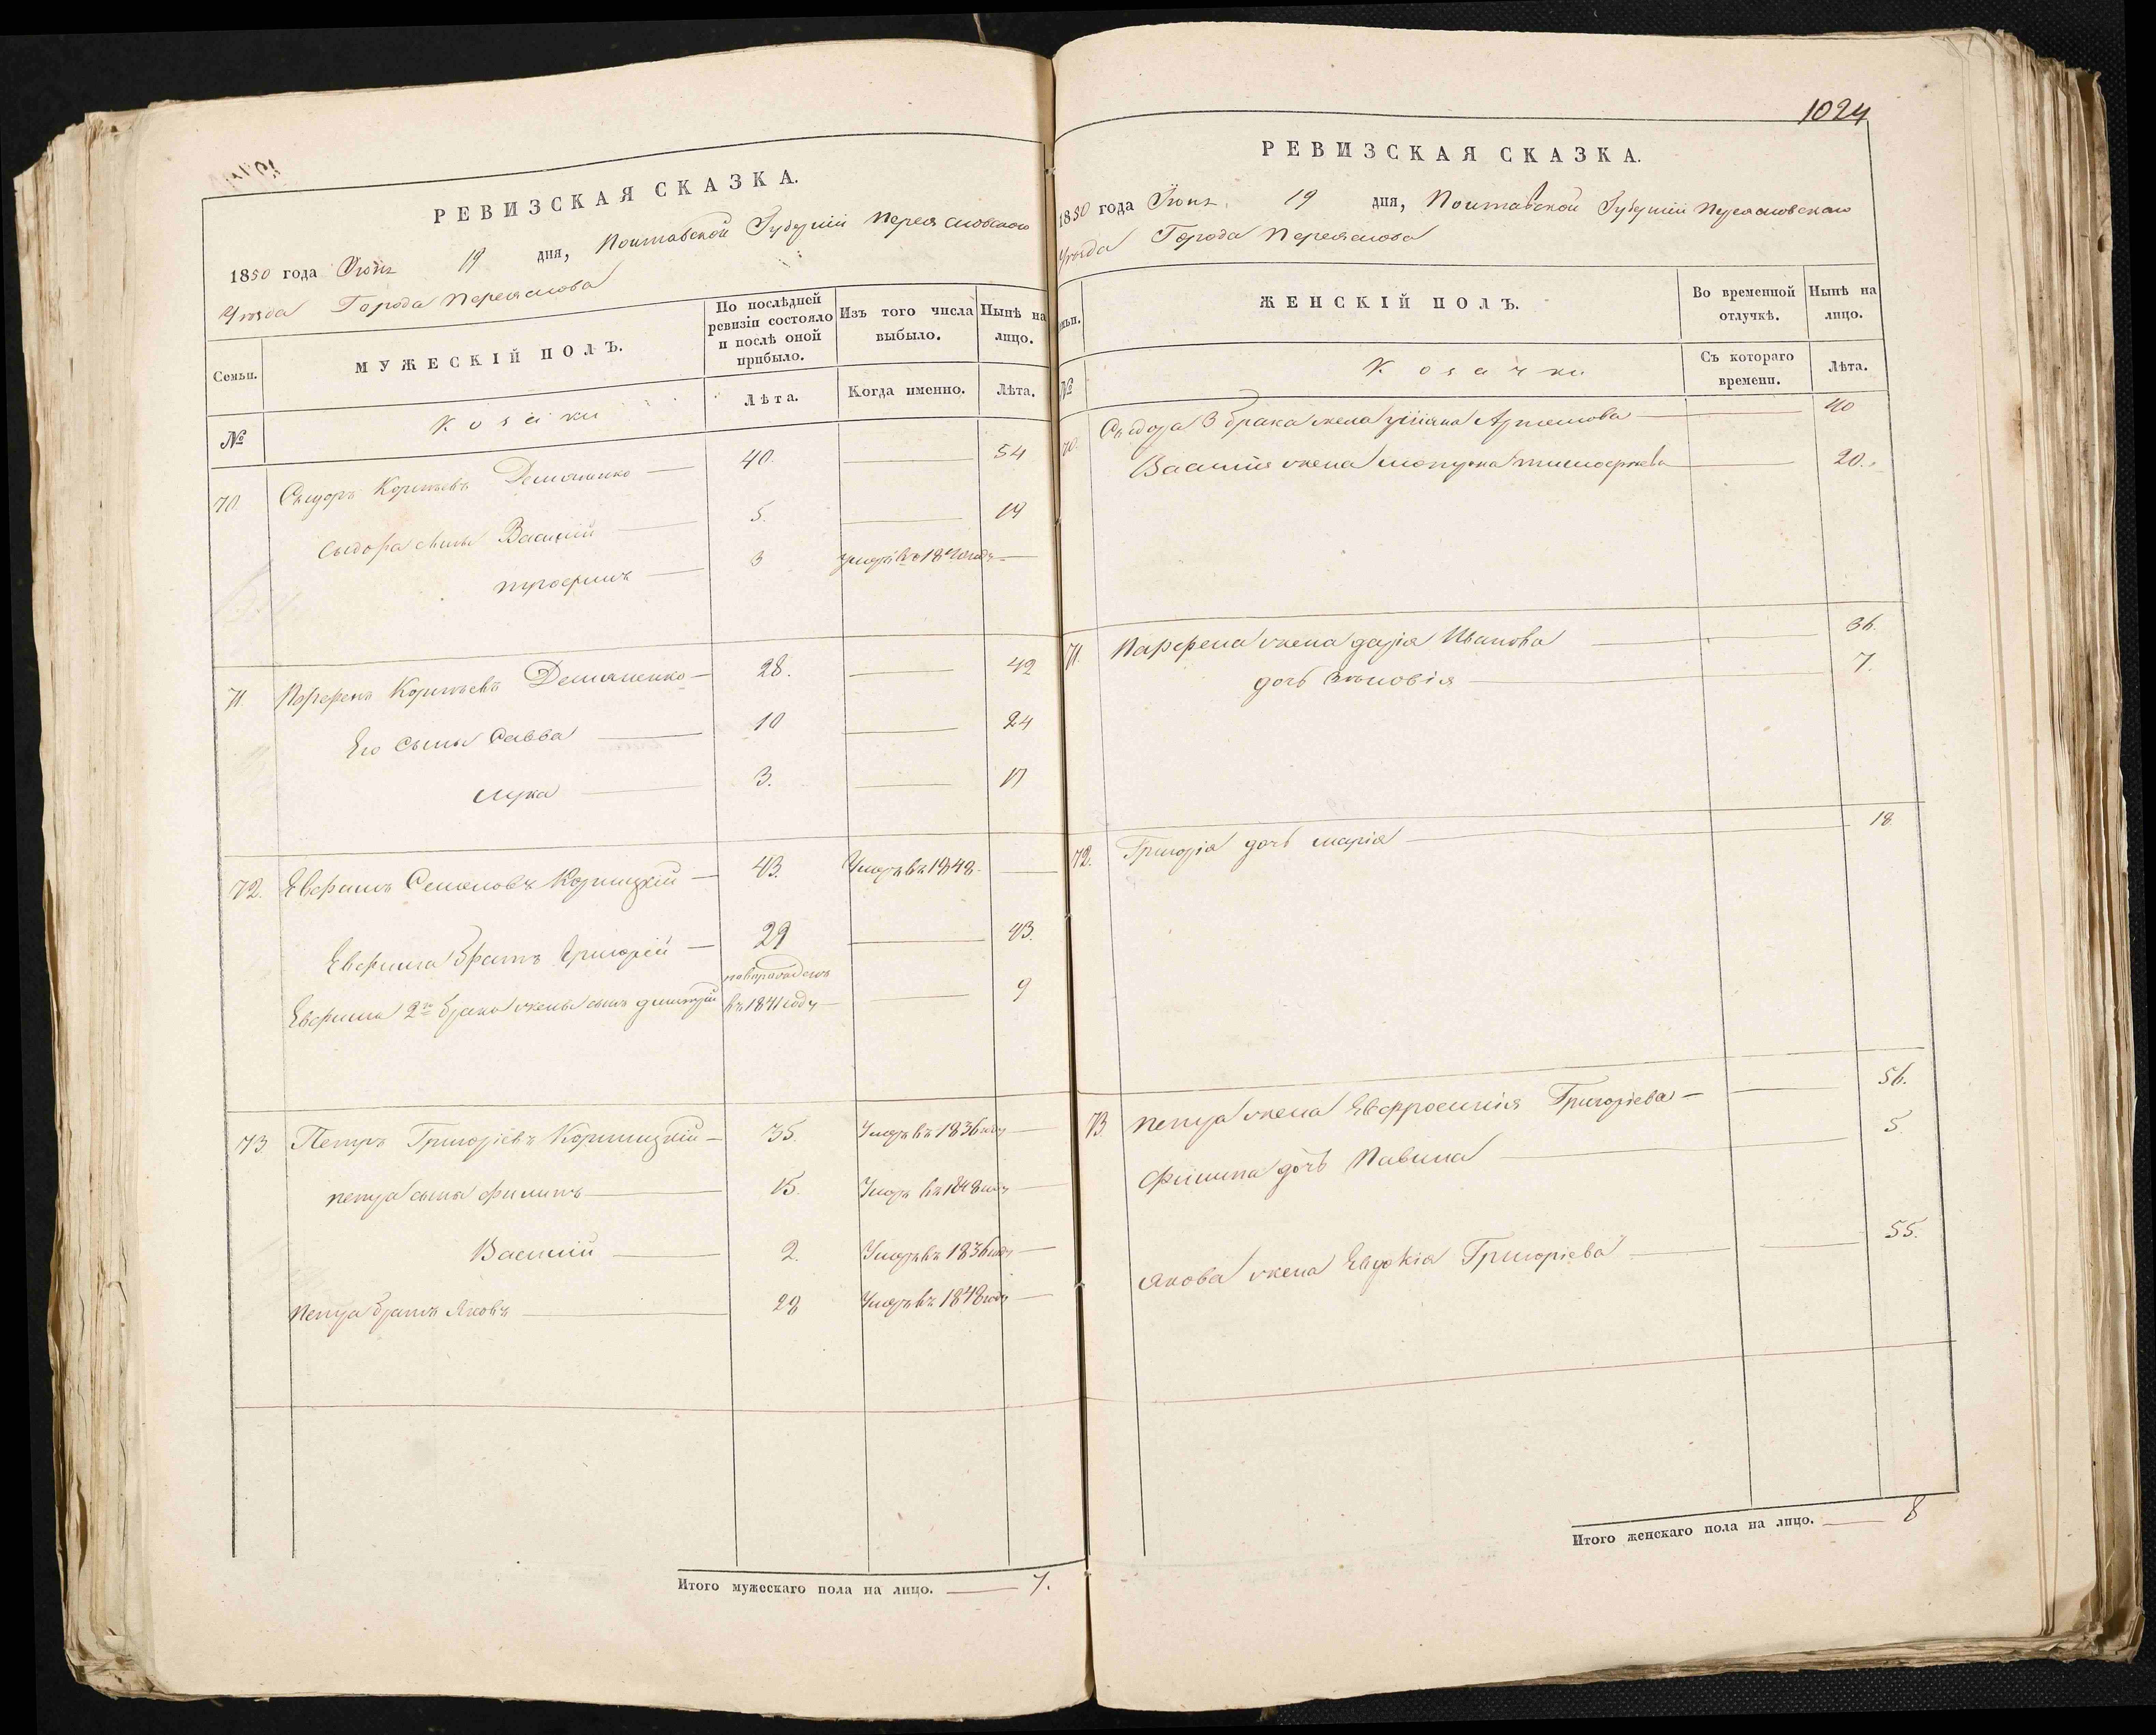 РЕВИЗСКАЯ СКАЗКА.
1850 года Июня 19 дня, Полтавской Губернии Переяславского
Уезда Города Переяслова
Семьи.
МУЖЕСКІЙ ПОЛЪ.
По послѣдней ревизіи состояло и послѣ оной прибыло.
Изъ того числа выбыло.
Нынѣ на лицо.
№
Козаки
Лѣта.
Когда именно.
Лѣта.
70. Сыдоръ Корнѣевъ Демяненко 40. 54
Сыдора сыны Василій 5. 19
трофимъ 3 умеръ въ 1840 году
71. Парфенъ Корнѣевъ Демяненко 28. 42
Его сыны Савва 10 24
лука 3. 17
72. Евфимъ Семеновъ Корницкій 43. Умеръ въ 1848.
Евфима братъ Григорій 29 43.
Евфима 2го брака жены сынъ димитрій новорожденъ въ 1841 году 9
73. Петръ Григоріевъ Корницкій 35. Умеръ въ 1836 году
петра сыны филипъ 15. Умеръ въ 1848 году
Василій 2. Умеръ въ 1836 году
Петра братъ Яковъ 28 Умеръ въ 1848 году
Итого мужескаго пола на лицо. 7.
1024
РЕВИЗСКАЯ СКАЗКА.
1850 года Июня 19 дня, Полтавской Губерніи Переяславского
Уезда Города Переяслова
ЖЕНСКІЙ ПОЛЪ.
Во временной отлучкѣ.
Нынѣ на лицо.
№
Козачки
Съ котораго времени.
Лѣта.
70. Сыдора 3 брака жена Артемова 40
Василія жена тимофеева 20.
71. Парфена жена дарія Иванова 36.
дочь Зѣновія 7.
72. Григорія дочь марія 18.
73. петра жена Евфросинія Григоріева 56.
филипа дочь Павлина 5.
якова жена Евдокія Григоріева 55.
Итого женскаго пола на лицо. 8